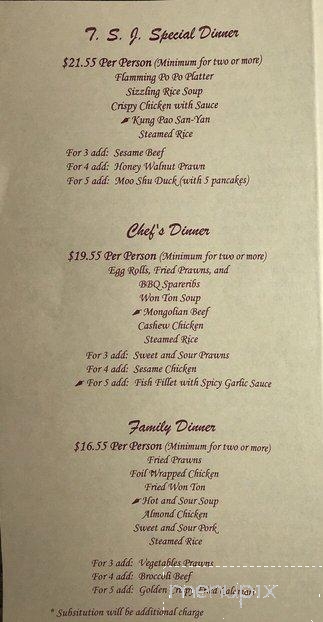 T. S. J. Special Dinner
$21.55 Per Person (Minimum for two or more)
Flamming Po Po Platter
Sizzling Rice Soup
Crispy Chicken with Sauce
Kung Pao San-Yan
Steamed Rice
For 3 add: Sesame Beef
For 4 add: Honey Walnut Prawn
For 5 add: Moo Shu Duck (with 5 pancakes)
Chef's Dinner
$19.55 Per Person (Minimum for two or more)
Egg Rolls, Fried Prawns, and
BBQ Spareribs
Won Ton Soup
Mongolian Beef
Cashew Chicken
Steamed Rice
For 3 add: Sweet and Sour Prawns
For 4 add: Sesame Chicken
For 5 add: Fish Fillet with Spicy Garlic Sauce
Family Dinner
$16.55 Per Person (Minimum for two or more)
Fried Prawns
Foil Wrapped Chicken
Fried Won Ton
Hot and Sour Soup
Almond Chicken
Sweet and Sour Pork
Steamed Rice
For 3 add: Vegetables Prawns
For 4 add: Broccoli Beef
For 5 add: Golden Crispy Fried Calamari
menupix
* Subsitution will be additional charge